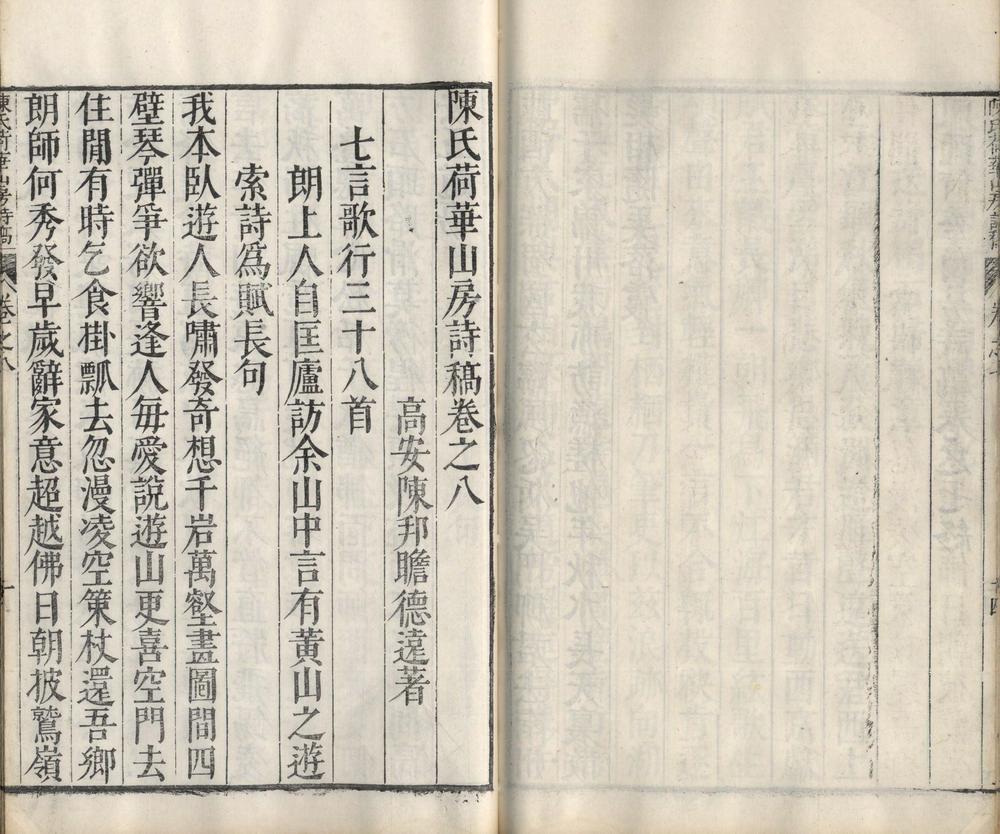 陳氏荷華山房詩稿卷之八
高安陳邦瞻德遠著
七言歌行三十八首
朗上人自匡廬訪余山中言有黃山之遊
索詩爲賦長句
我本臥遊人長嘯發奇想千岩萬壑畫圖間四
壁琴彈爭欲響逢人每愛說遊山更喜空門去
住閒有時乞食掛瓢去忽漫凌空策杖還吾鄉
朗師何秀發早歲辭家意超越佛日朝披鷲嶺
陳氏荷華山房詩稿
卷之八
一